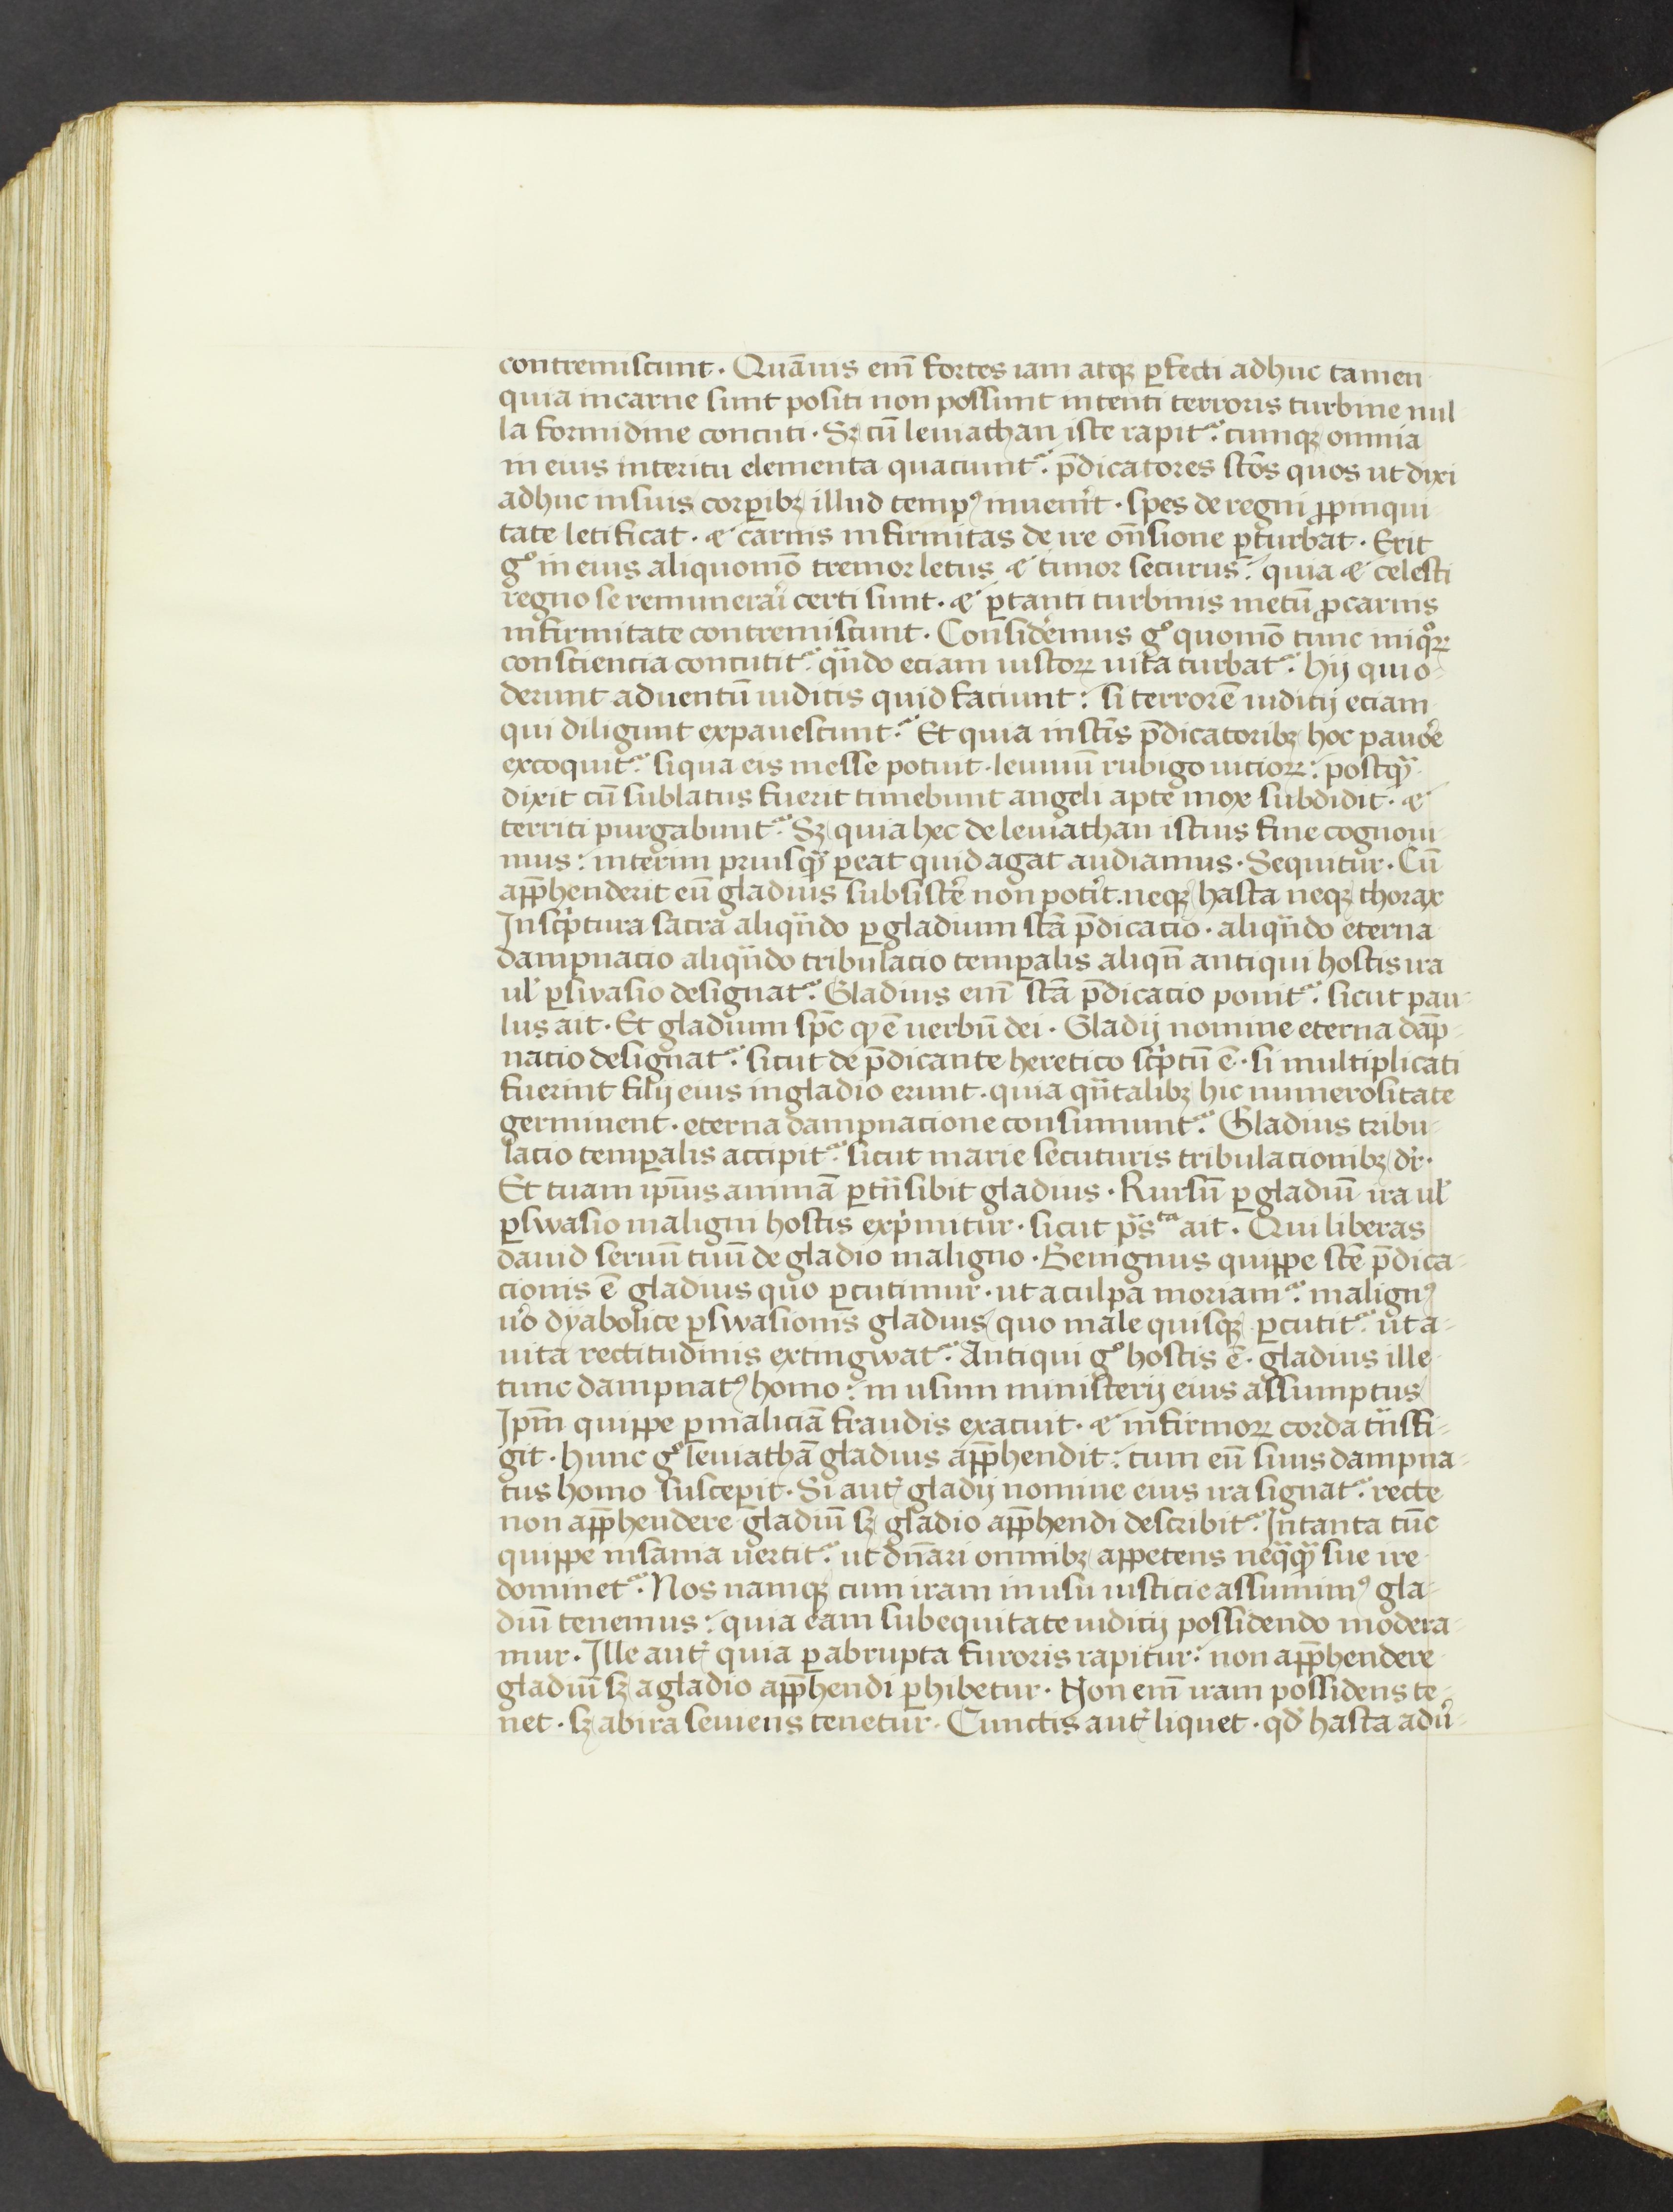 contremiscunt. Quāuis em̄ fortes iam atqꝫ ꝑfecti adhuc tamen
quia in carne sunt positi non possunt intenti terroris turbine nul
la formidine concuti. Sꝫ cū leuiathan iste rapitᷣ. cumqꝫ omnia
in eius interitu elementa quaciuntᷣ. p̄dicatores sc̄os quos ut dixi
adhuc in suis corꝑibꝫ illud tempꝰ inuenit̉. spes de regni ꝓpinqui
tate letificat. ⁊ carnis infirmitas de ire on̄sione ꝑturbat. Erit
gᵒ in eius aliquomō tremor letus ⁊ timor securus. quia ⁊ celesti
regno se remunerari certi sunt. ⁊ ꝑ tanti turbinis metū ꝓ carnis
infirmitate contremiscunt. Consid̓emus gᵒ quomō tunc iniqᵒꝝ
consciencia concutitᷣ. qᷓndo eciam iustoꝝ uita turbatᷣ. Hij qui o-
derunt aduentū iudicis quid faciunt. si terrorē iudicij eciam
qui diligunt expauescunt. Et quia in sc̄is p̄dicatoribꝫ hoc pauo̓e
excoquitᷣ. si qua eis inesse potuit. leuiuū rubigo uicioꝝ. postqᷓ
dixit cū sublatus fuerit timebunt angeli apte mox subdidit. ⁊
territi purgabuntᷣ. Sꝫ quia hec de leuiathan istius fine cognoui-
mus. interim priusqᷓ ꝑeat quid agat audiamus. Sequitur. Cū
app̄henderit eū gladius subsiste̓ non pot̓it. neqꝫ hasta neqꝫ thorax
In scͥptura sacra aliqᷓndo ꝑ gladium sc̄a p̄dicacio. aliqᷓndo eterna
dampnacio aliqᷓndo tribulacio temꝑalis aliqn̄ antiqui hostis ira
ul̓ ꝑsuasio designatᷣ. Gladius em̄ sc̄a p̄dicacio ponitᷣ. sicut pau-
lus ait. Et gladium sp̄c qͥ ē uerbū dei. Gladij nomine eterna dāp-
nacio designatᷣ. sicut de p̄dicante heretico scͥptū ē. si multiplicati
fuerint filij eius in gladio erunt. quia qᷓntalibꝫ hic numerositate
germinent. eterna dampnacione consumuntᷣ. Gladius tribu-
lacio temꝑalis accipitᷣ. sicut marie secuturis tribulacionibꝫ dr̄.
Et tuam ipīus animā ꝑtᷓnsibit gladius. Rursū ꝑ gladiū ira ul̓
ꝑswasio maligni hostis expͥmitur. sicut pᷤs ᵗᵃ ait. Qui liberas
dauid seruū tuū de gladio maligno. Benignus quippe sc̄e p̄dica-
cionis ē gladius quo ꝑcutimur. ut a culpa moriamᷣ. malignꝰ
uo̓ dyabolice ꝑswasionis gladius quo male quisqꝫ ꝑcutitᷣ. ut a-
uita rectitudinis extingwatᷣ. Antiqui gᵒ hostis ē. gladius ille
tunc dampnatꝰ homo. in usum ministerij eius assumptus
Ipm̄ quippe ꝑ maliciā fraudis exacuit. ⁊ infirmoꝝ corda tᷓnsfi-
git. Hunc gᵒ leuiathā gladius app̄hendit. cum eū suus dampna-
tus homo susceperit. Si aut̉ gladij nomine eius ira signatᷣ. recte
non app̄hendere gladiū sꝫ gladio app̄hendi describitᷣ. In tanta tūc
quippe insania uertitᷣ. ut dn̄ari omnibꝫ appetens neqᷓqᷓ sue ire
dominetᷣ. Nos namqꝫ cum iram in usu iusticie assumimꝰ gla-
diū tenemus. quia eam sub equitate iudicij possidendo modera-
mur. Ille aut̉ quia ꝑ abrupta furoris rapitur. non app̄hendere
gladiū sꝫ a gladio app̄hendi ꝑhibetur. Non em̄ iram possidens te-
net. sꝫ ab ira seuiens tenetur. Cunctis aut̉ liquet. qd̓ hasta adu̓-